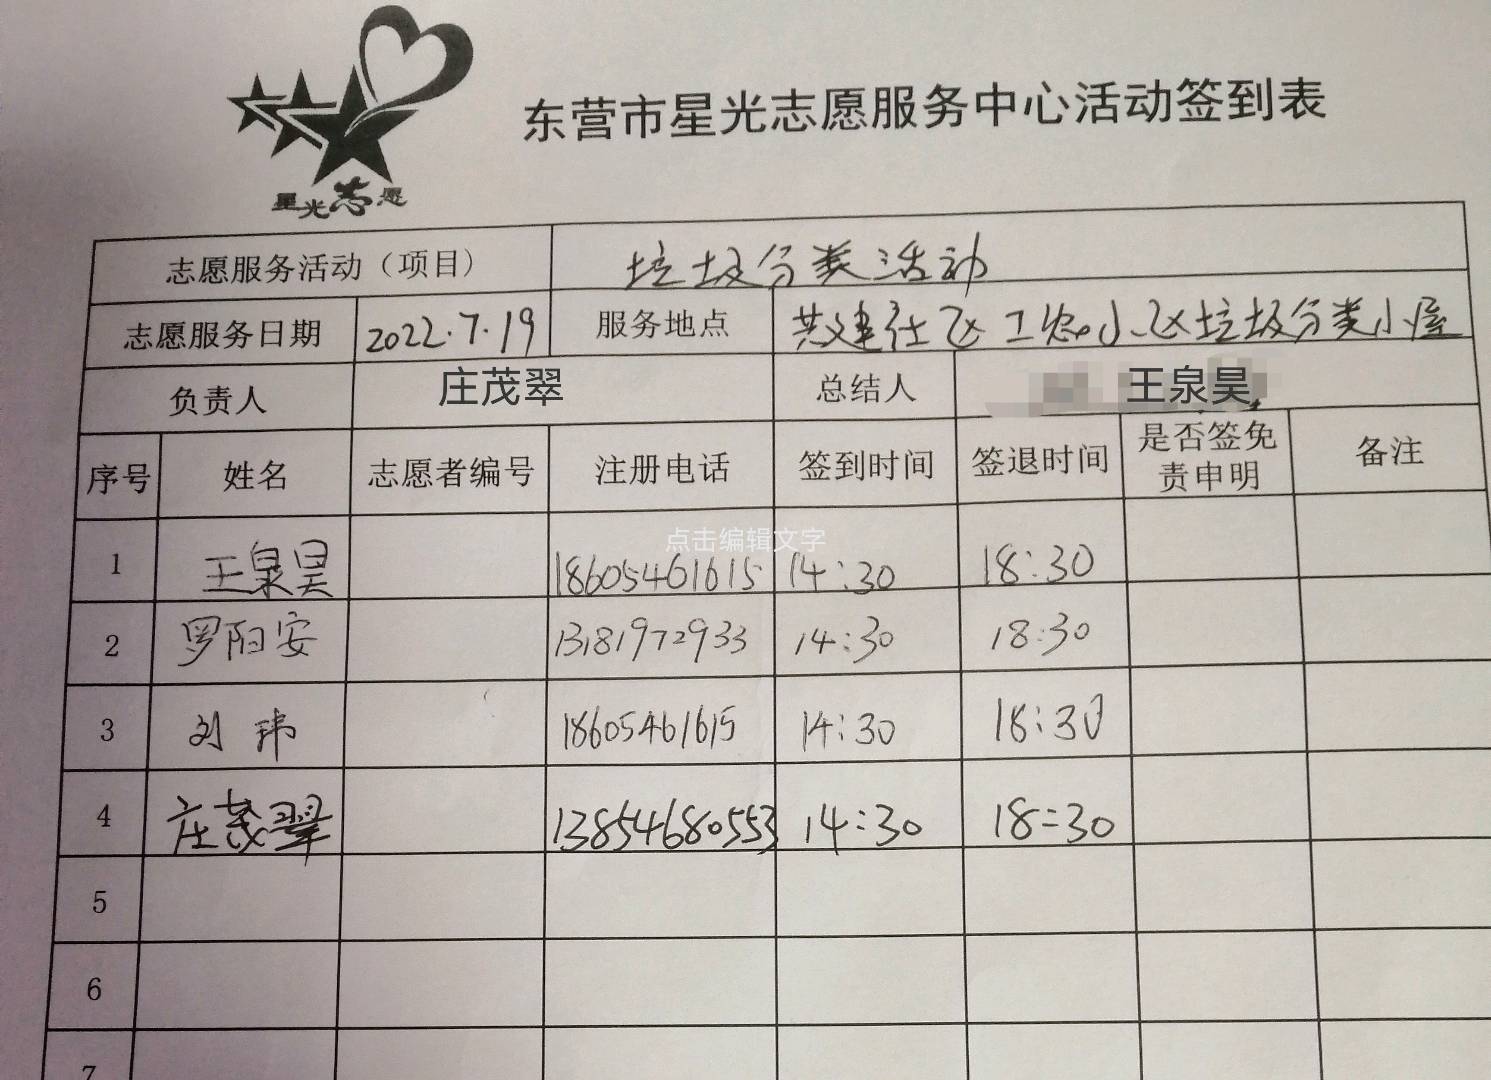 星光志愿
东营市星光志愿服务中心活动签到表
志愿服务活动（项目） 垃圾分类活动
志愿服务日期 2022.7.19 服务地点 共建社区工农小区垃圾分类小屋
负责人 庄茂翠 总结人 王泉昊
序号 姓名 志愿者编号 注册电话 签到时间 签退时间 是否签免责申明 备注
点击编辑文字
1 王泉昊 18605461615 14:30 18:30
2 罗阳安 13181972933 14:30 18:30
3 刘玮 18605461615 14:30 18:30
4 庄茂翠 13854680553 14:30 18:30
5
6
7